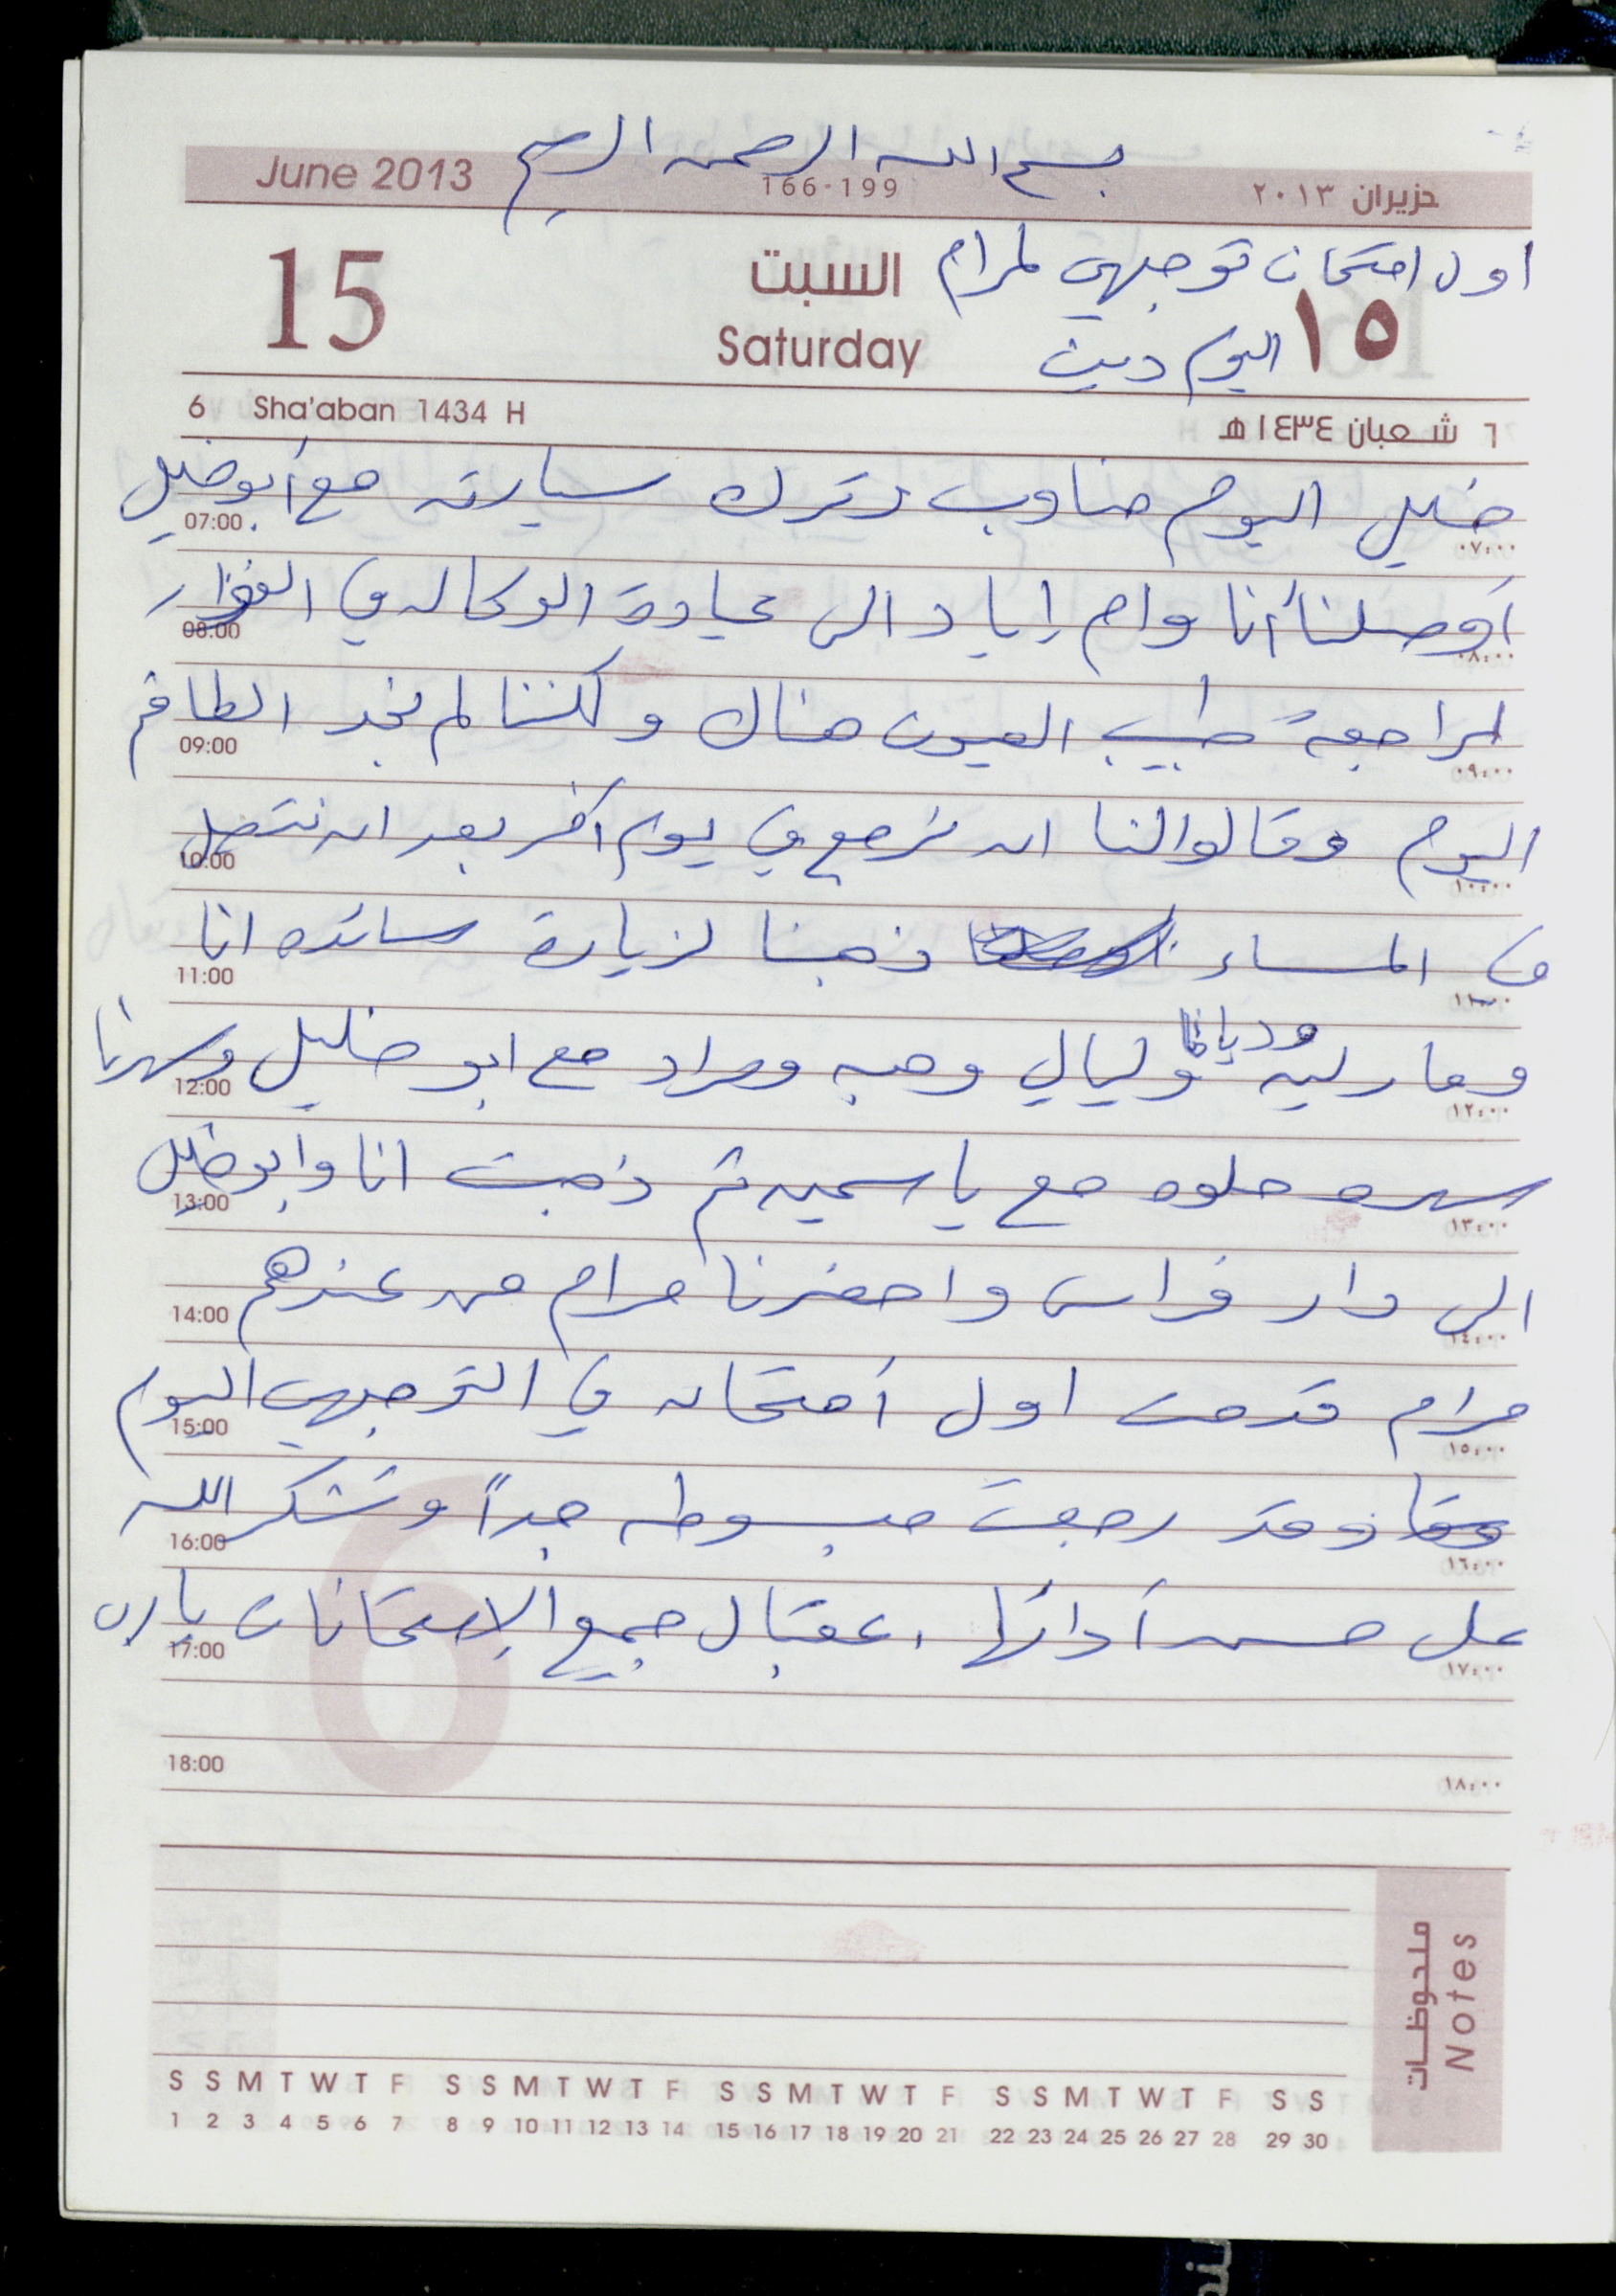 بسم الله الرحمن الرحيم
June 2013 166-199 حزيران ٢٠١٣
اول امتحان توجيهي لمرام
15 السبت ١٥
Saturday اليوم دين
6 Sha'aban 1434 H ٦ شعبان ١٤٣٤ هـ
خليل اليوم مناوب وترك سيارته مع أبو خليل
07:00 ٠٧:٠٠
أوصلنا أنا وام إياد الى عيادة الوكاله في الفوار
08:00 ٠٨:٠٠
لمراجعة طبيب العيون هناك ولكننا لم نجد الطاقم
09:00 ٠٩:٠٠
اليوم وقالوا لنا ان نرجع في يوم آخر بعد ان نتصل
10:00 ١٠:٠٠
في المساء ذهبنا لزيارة سائده انا
11:00 ١١:٠٠
وماريه وديانا وليالي وهبه ومراد مع ابو خليل وسهرنا
12:00 ١٢:٠٠
سهره حلوه مع ياسمين ثم ذهبت انا وابو خليل
13:00 ١٣:٠٠
الى دار فراس واحضرنا مرام من عندهم
14:00 ١٤:٠٠
مرام قدمت اول أمتحان في التوجيهي اليوم
15:00 ١٥:٠٠
وقد رجعت مبسوطه جداً وتشكر الله
16:00 ١٦:٠٠
على حسن أدائها . عقبال جميع الامتحانات يارب
17:00 ١٧:٠٠
18:00 ١٨:٠٠
ملحوظات
Notes
S S M T W T F S S M T W T F S S M T W T F S S M T W T F S S
1 2 3 4 5 6 7 8 9 10 11 12 13 14 15 16 17 18 19 20 21 22 23 24 25 26 27 28 29 30